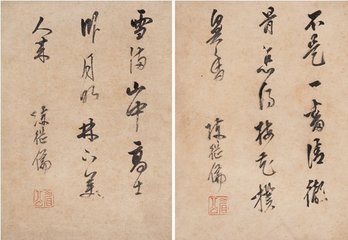 不是一番清徹
骨怎得梅花撲
鼻香
陳繼儒
雪滿山中高士
卧月明林下美
人来
陳繼儒